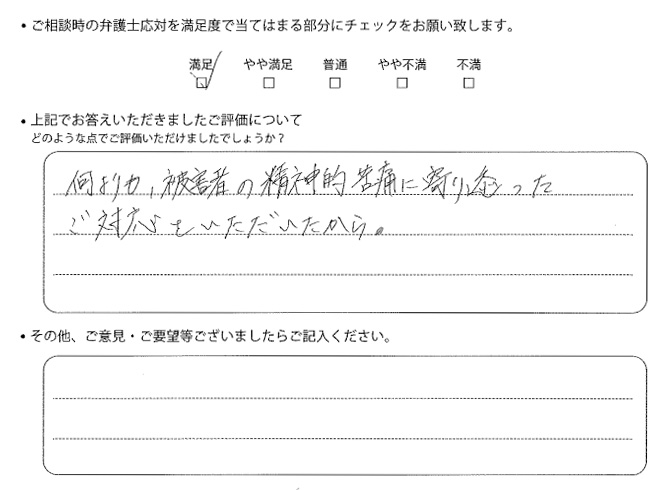 • ご相談時の弁護士応対を満足度で当てはまる部分にチェックをお願い致します。
満足 やや満足 普通 やや不満 不満
• 上記でお答えいただきましたご評価について
どのような点でご評価いただけましたでしょうか？
何よりも、被害者の精神的苦痛に寄り添った
ご対応をいただいたから。
• その他、ご意見・ご要望等ございましたらご記入ください。